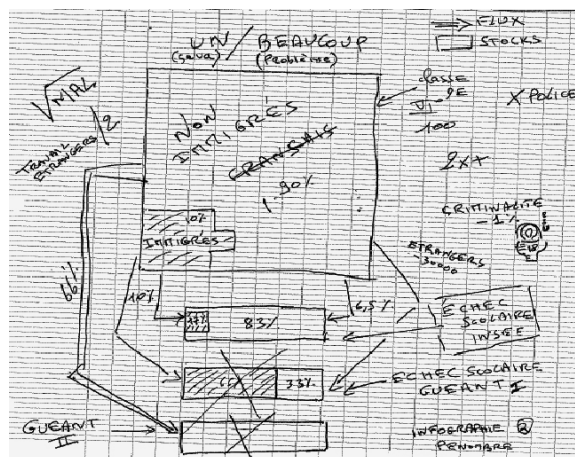 UN / BEAUCOUP
(ça va) (Problème)
FLUX
STOCKS
√MAL
TRAVAIL
ETRANGERS
/2
NON
IMMIGRÉS
FRANÇAIS
90%
10%
IMMIGRÉS
classe
100
X POLICE
2x+
CRIMINALITE
-1%
ETRANGERS
-30000
66%
10%
6,5%
83%
ECHEC
SCOLAIRE
INSEE
33%
ECHEC SCOLAIRE
GUEANT I
GUEANT
II
INFOGRAPHIE
PENOMBRE